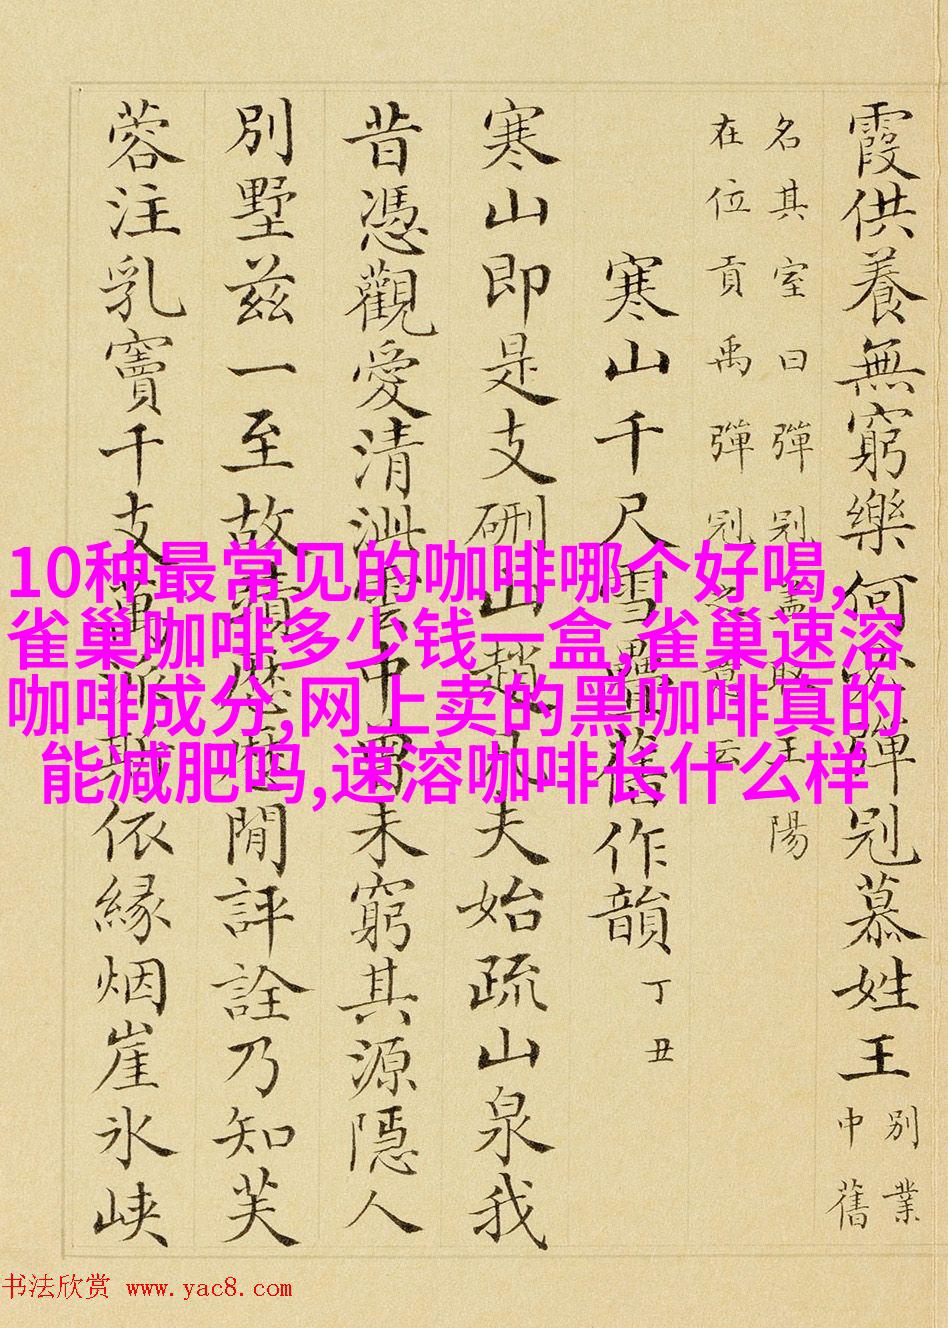 霞供養無窮樂何彈冠慕姓王
別業
中舊
名其室曰彈冠蓋取王陽
在位貢禹彈冠之意云
寒山千尺雪疊舊作韻
丁丑
寒山即是支硎山趙夫始疏山泉我
昔憑觀愛清泚雲中未窮其源隱人
別墅茲一至故蹟閒評詮乃知芙
蓉注乳竇千支萬派依緣烟崖氷峡
10种最常见的咖啡哪个好喝,
雀巢咖啡多少钱一盒,雀巢速溶
咖啡成分,网上卖的黑咖啡真的
能减肥吗,速溶咖啡长什么样
书法欣赏 www.yac8.com